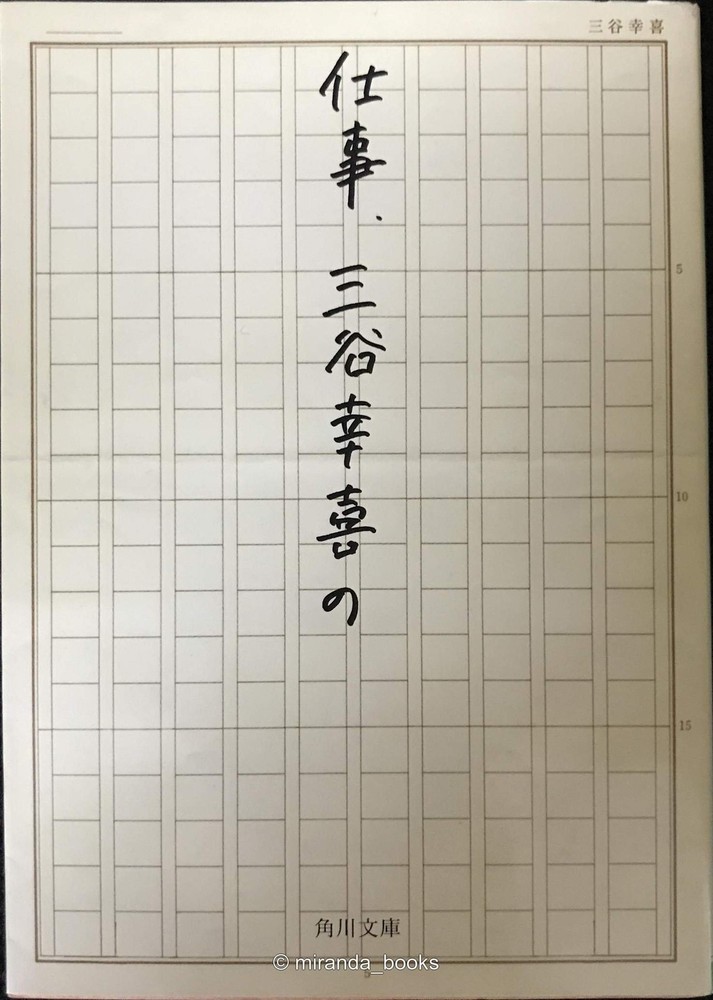 三谷幸喜
仕事、三谷幸喜の
5
10
15
角川文庫
© miranda_books